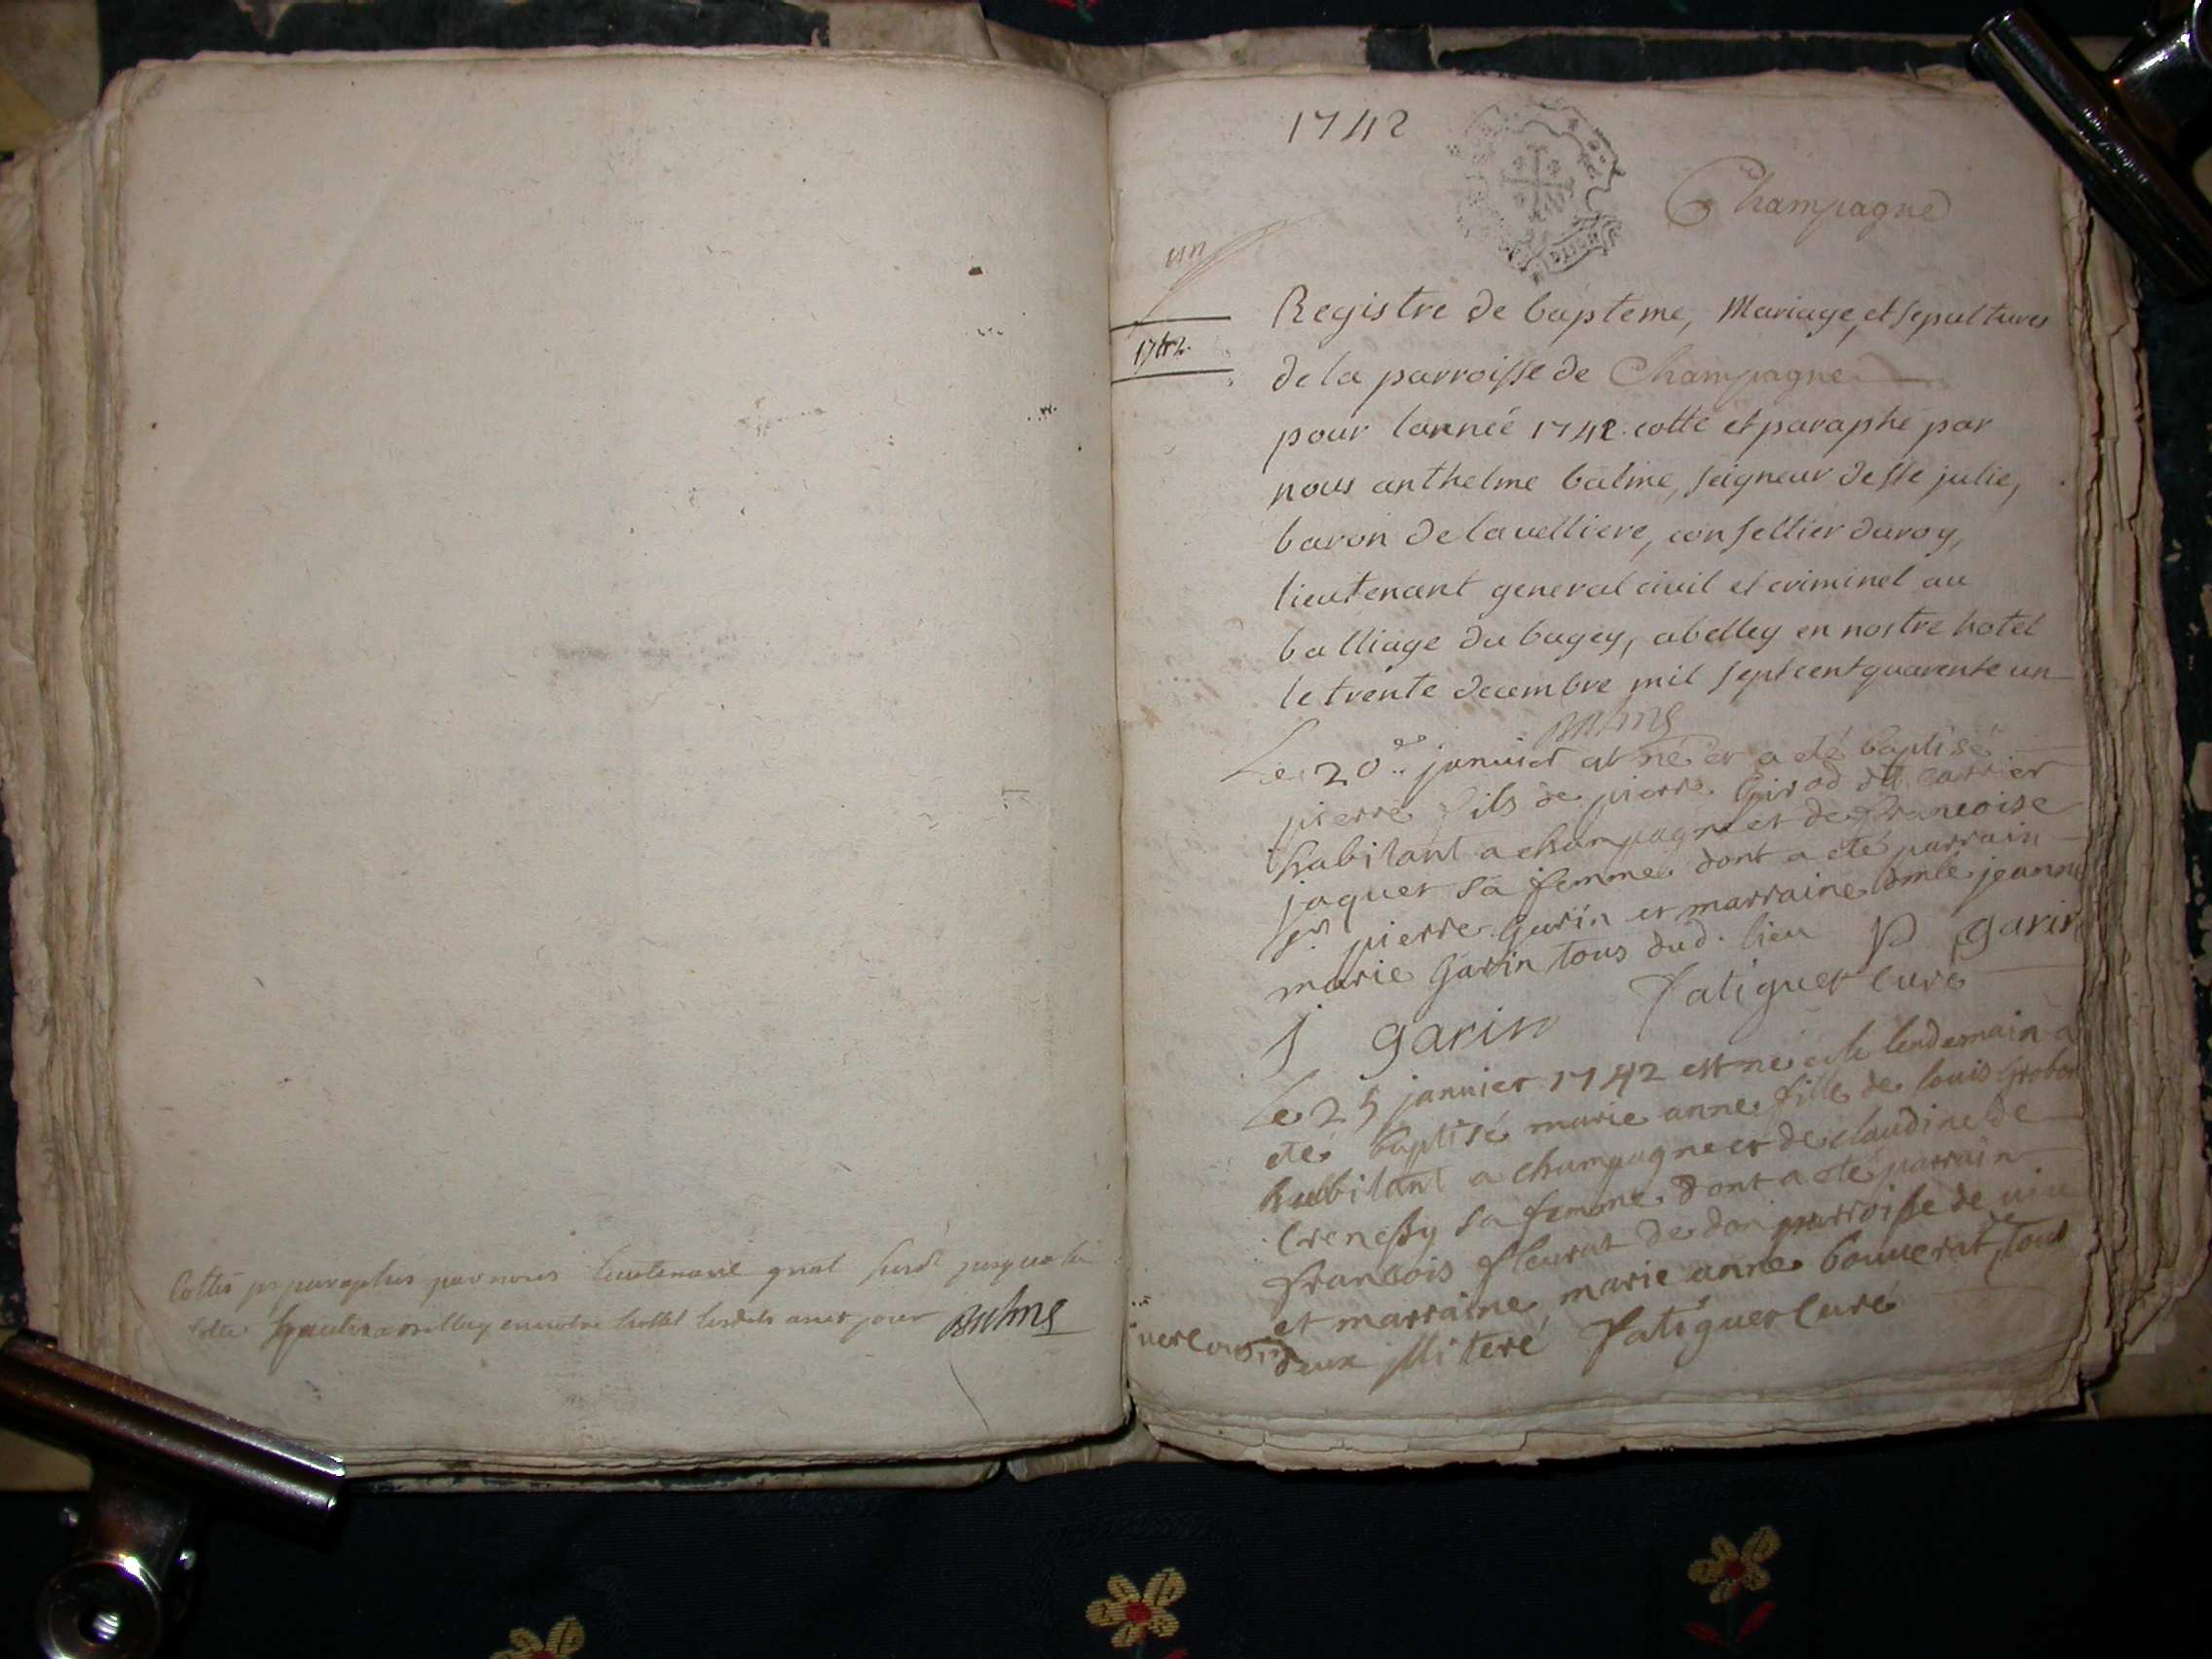 Cottés et paraphés par nous lieutenant gnal jusqua la
en notre hottel lesdits an et jour Balme
1742
DIJON
Champagne
un
1742.
Registre de bapteme, Mariage, et sepultures
de la parroisse de Champagne
pour lannée 1742. cotté et paraphé par
nous anthelme balme, seigneur de ste julie,
baron de lavelliere, consellier du roy,
lieutenant general civil et criminel au
balliage du bugey, a belley en nostre hotel
le trente decembre mil sept cent quarente un
Balme
Le 20e janvier est né et a eté baptisé
pierre fils de pierre Girod dit carrier
habitant a champagne et de francoise
jaquet sa femme dont a eté parrain
sr pierre Garin et marraine dmle jeanne
marie Garin tous dud. lieu P garin
J garin Patiguet curé
Le 25 janvier 1742 est né et le lendemain a
eté baptisé marie anne fille de louis Grobon
habitant a champagne et de claudine de
Crenessy sa femme dont a eté parrain
francois fleurat de don parroisse de vieu
et marraine marie anne bonnerat tous
deux illiteré Patiguet Curé